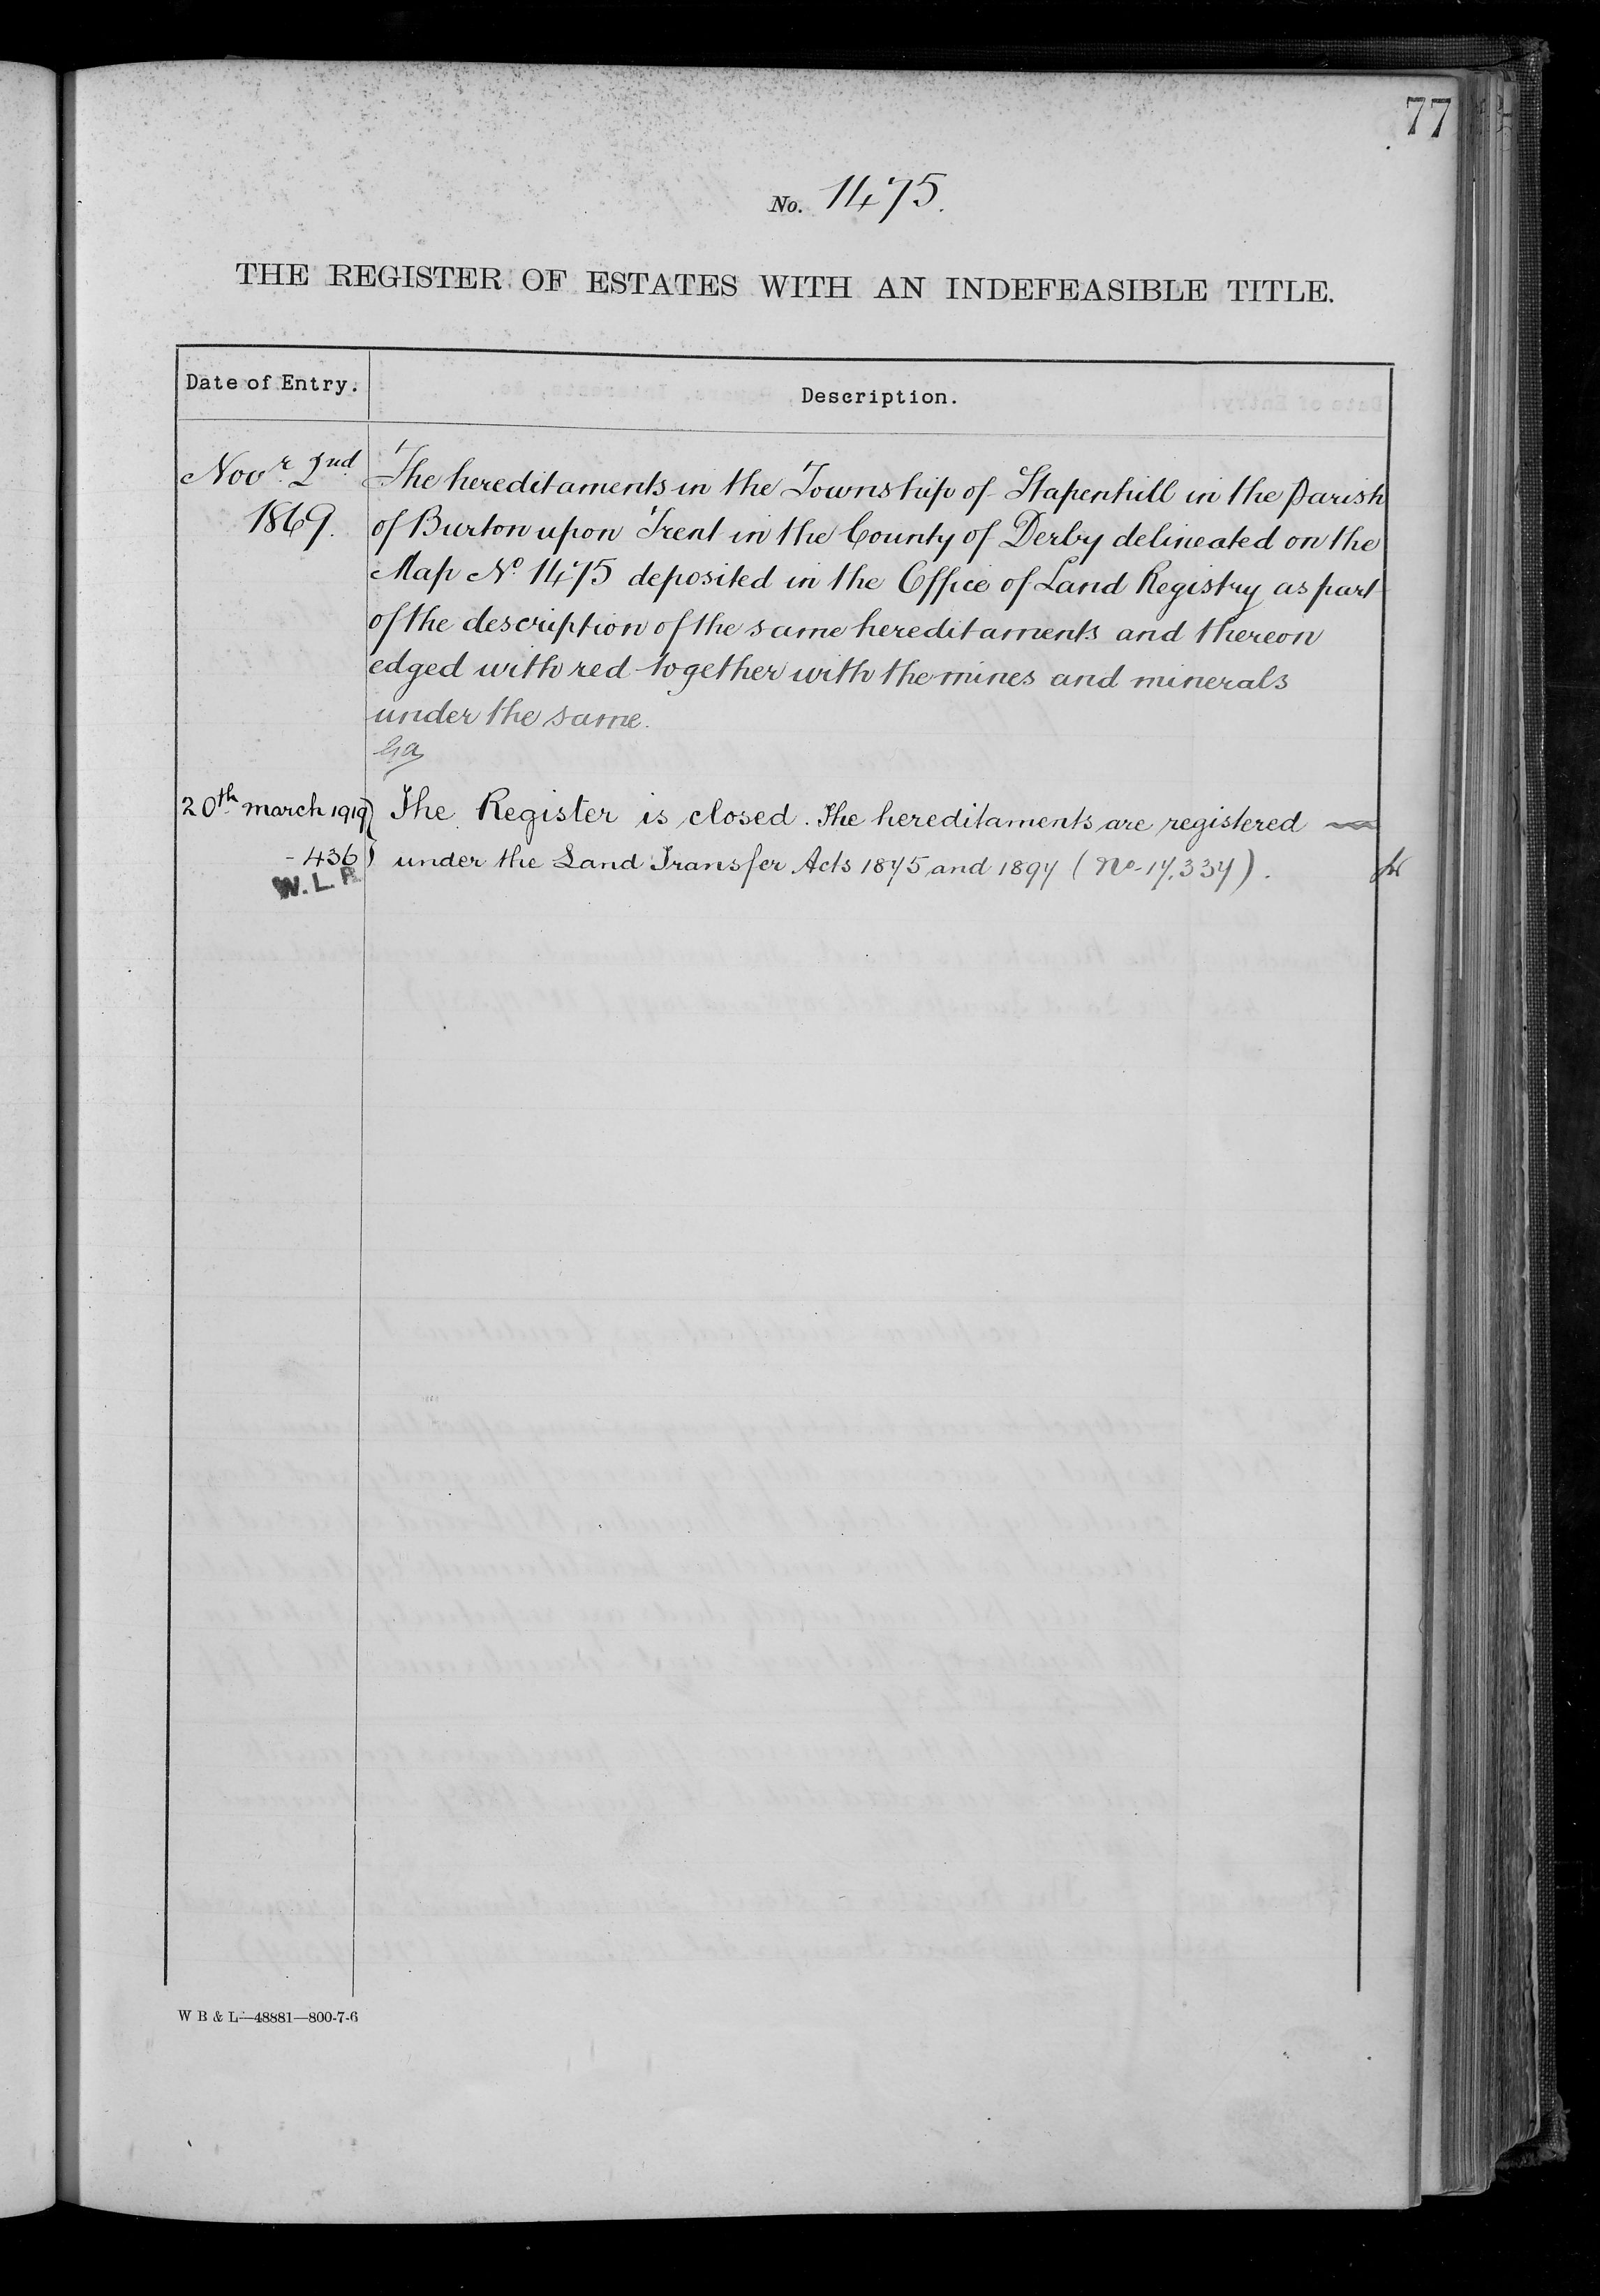 77
No. 1475.
THE REGISTER OF ESTATES WITH AN INDEFEASIBLE TITLE.
Date of Entry. Description.
Novr. 2nd The hereditaments in the Township of Stapenhill in the parish
1869. of Burton upon Trent in the County of Derby delineated on the
Map No 1475 deposited in the Office of Land Registry as part
of the description of the same hereditaments and thereon
edged with red together with the mines and minerals
under the same.
20th march 1919 The Register is closed. The hereditaments are registered
- 436 under the Land Transfer Acts 1875 and 1897 (No. 17,337).
W. L. R
W B & L—48881—800-7-6